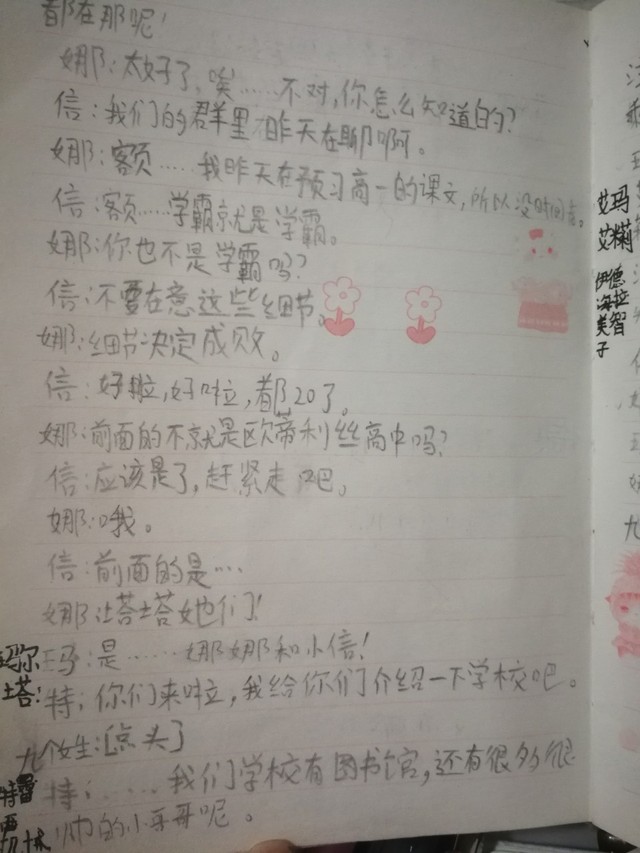 都在那呢!
娜:太好了,唉……不对,你怎么知道的?
信:我们的群里昨天在聊啊。
娜:额……我昨天在预习高一的课文,所以没时间看。
信:额……学霸就是学霸。
娜:你也不是学霸吗?
信:不要在意这些细节。
娜:细节决定成败。
信:好啦,好啦,都20了。
娜:前面的不就是欧蒂利丝高中吗?
信:应该是了,赶紧走吧。
娜:哦。
信:前面的是…
娜:塔塔她们!
玛:是……娜娜和小信!
特:你们来啦,我给你们介绍一下学校吧。
九个女生:[点头]
特:……我们学校有图书馆,还有很多很
帅的小哥哥呢。
玛尔
塔:
特蕾
西
艾玛
艾莉
伊德
海拉
美智
子
九